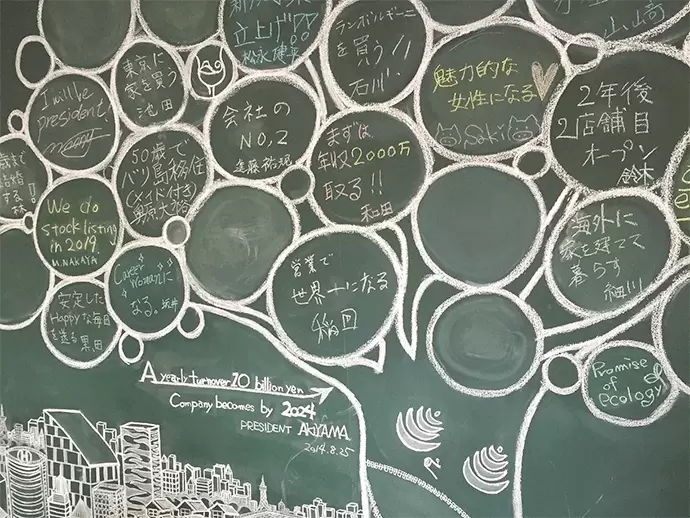 立上げ!!
松永 健平
ランボルギーニ
を買う!!
石川
山﨑
東京に
家を買う
池田
I will be
president!
会社の
NO,2
遠藤 裕規
魅力的な
女性になる
Saki
2年後
2店舗目
オープン
鈴木
50歳で
バリ島移住
(メイド付き)
まずは
年収2000万
取る!!
和田
結婚
する!
林
We do
stock listing
in 2019.
M.NAKAYA
Career
Womanに
なる。坂井
営業で
世界一になる
稲田
海外に
家を建てて
暮らす
細川
安定した
Happyな毎日
を送る 黒田
Promise
of
ecology
A yearly turnover 10 billion yen
Company becomes by 2024
PRESIDENT AKIYAMA
2014.8.25